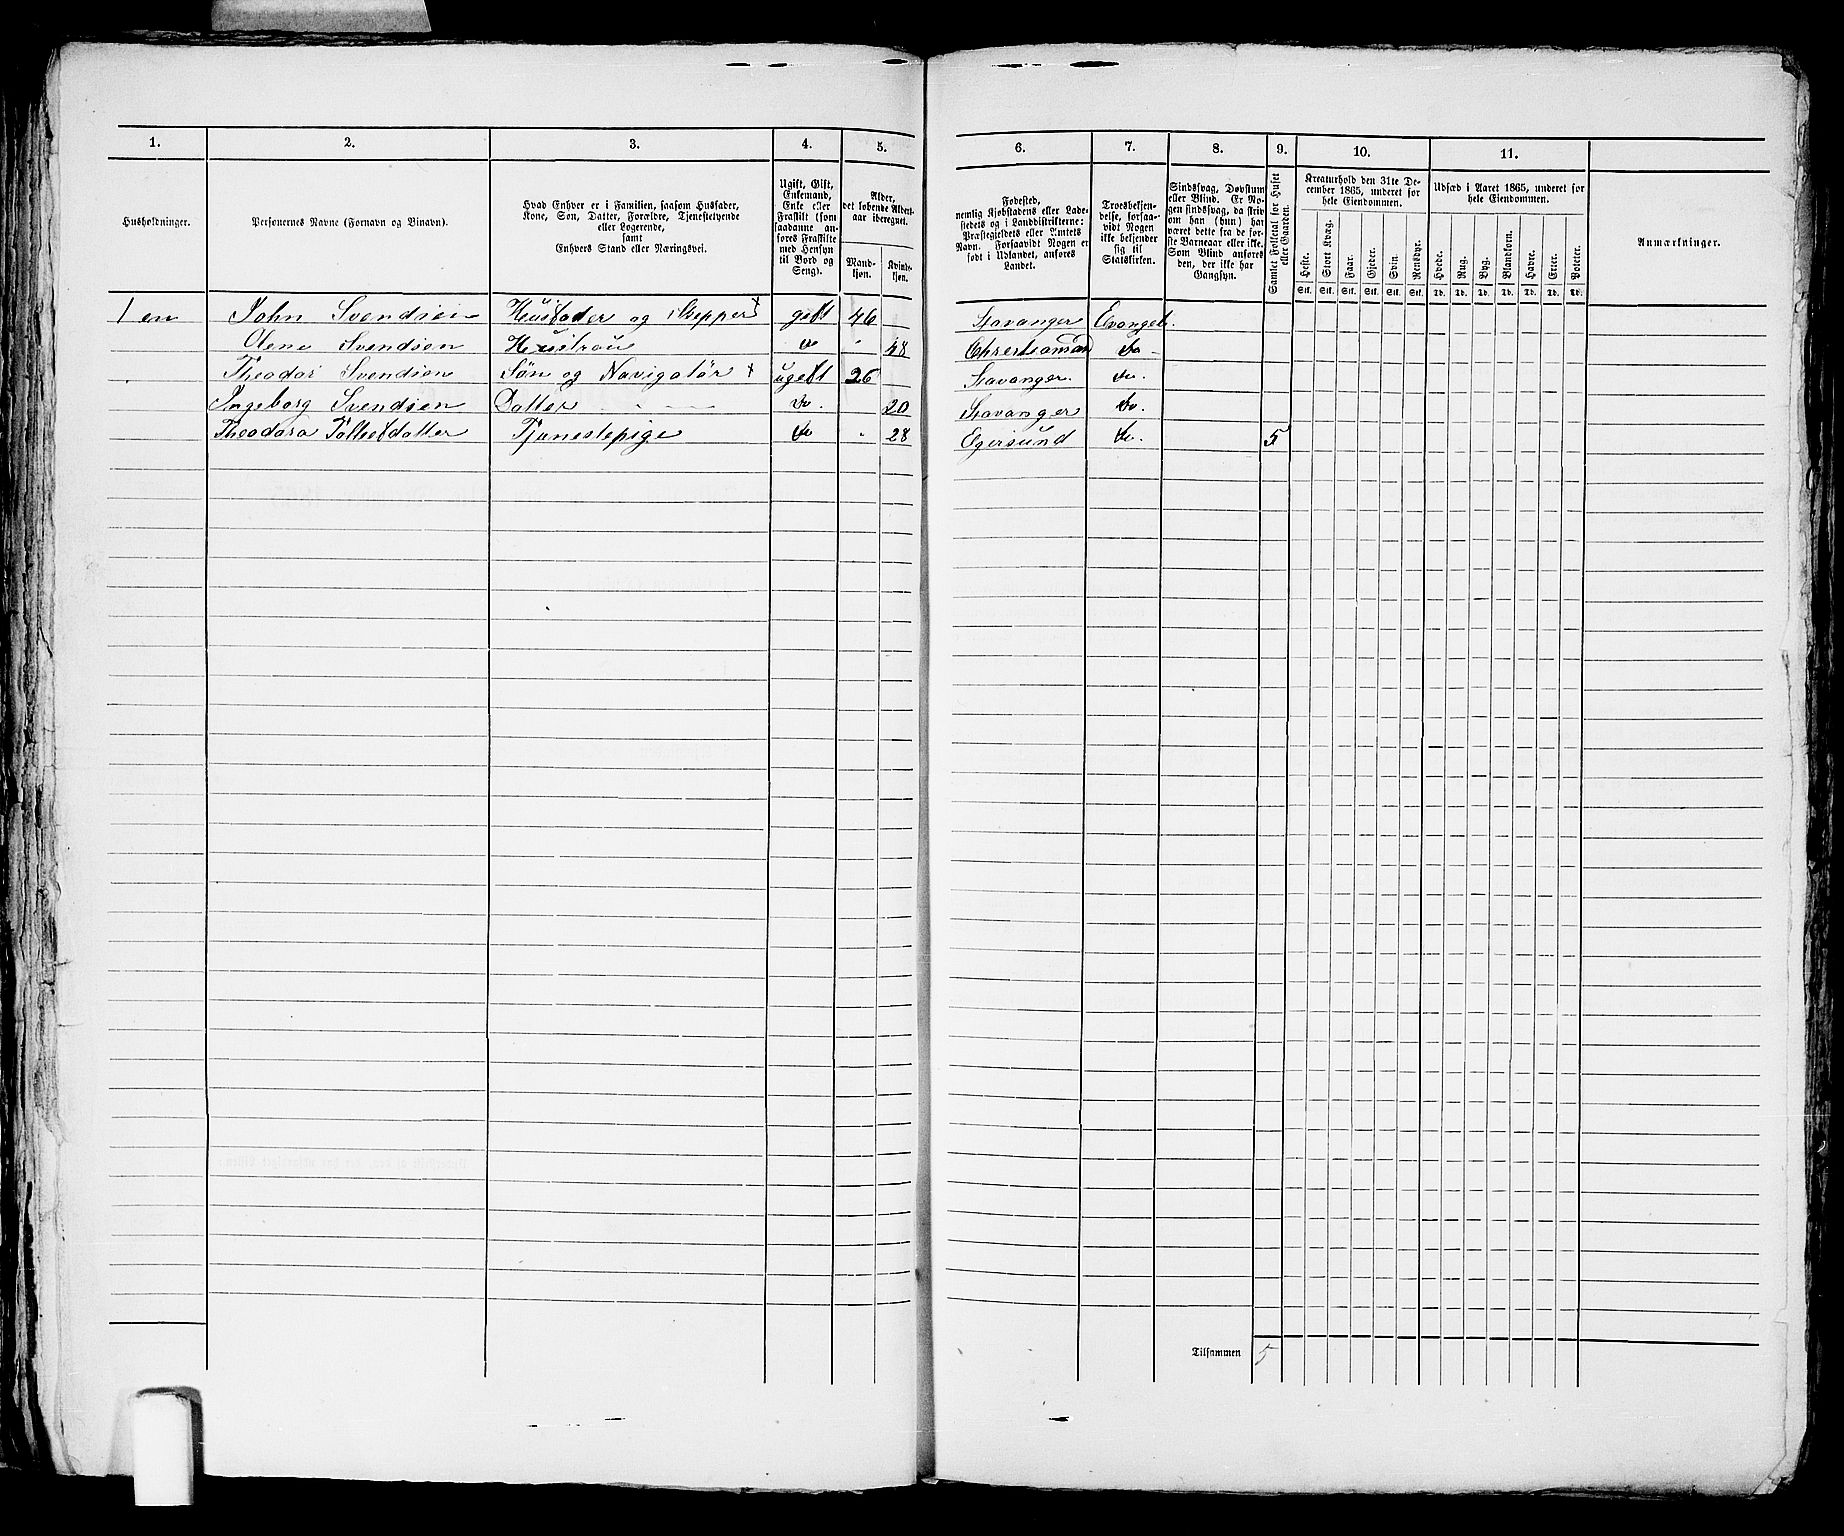 1. 2. 3. 4. 5. 6. 7. 8. 9. 10. 11.
Husholdninger.
Personernes Navne (Fornavn og Binavn).
Hvad Enhver er i Familien, saasom Husfader,
Kone, Søn, Datter, Forældre, Tjenestetyende
eller Logerende,
samt
Enhvers Stand eller Næringsvei.
Ugift, Gift,
Enkemand,
Enke eller
Fraskilt (som
saadanne an-
føres Fraskilte
med Hensyn
til Bord og
Seng).
Alder,
det løbende Alders-
aar iberegnet.
Mand-
kjøn.
Kvinde-
kjøn.
Fødested,
nemlig Kjøbstadens eller Lade-
stedets og i Landdistrikterne:
Præstegjeldets eller Amtets
Navn. Forsaavidt Nogen er
født i Udlandet, anføres
Landet.
Troesbekjen-
delse, forsaa-
vidt Nogen
ikke bekjender
sig til
Statskirken.
Sindssvag, Døvstum
eller Blind. Er No-
gen sindssvag, da skriv
om han (hun) har
været dette fra de før-
ste Barneaar eller ikke.
Som Blind anføres
den, der ikke har
Gangsyn.
Samlet Folketal for Huset
eller Gaarden.
Kreaturhold den 31te De-
cember 1865, underet for
hele Eiendommen.
Heste. Stort Kvæg. Faar. Gjeder. Svin. Rensdyr.
Stk. Stk. Stk. Stk. Stk. Stk.
Udsæd i Aaret 1865, underet for
hele Eiendommen.
Hvede. Rug. Byg. Blandkorn. Havre. Erter. Poteter.
Td. Td. Td. Td. Td. Td. Td.
Anmærkninger.
1 en John Svendsen Husfader og Skipper gift 46 Stavanger Evangel.
Olene Svendsen Hustrou do 48 Christiansand do
Theodor Svendsen Søn og Navigatör ugift 26 Stavanger do.
Ingeborg Svendsen Datter do. 20 Stavanger do.
Theodora Tjenestepige do 28 Egersund do. 5
Tilsammen 5